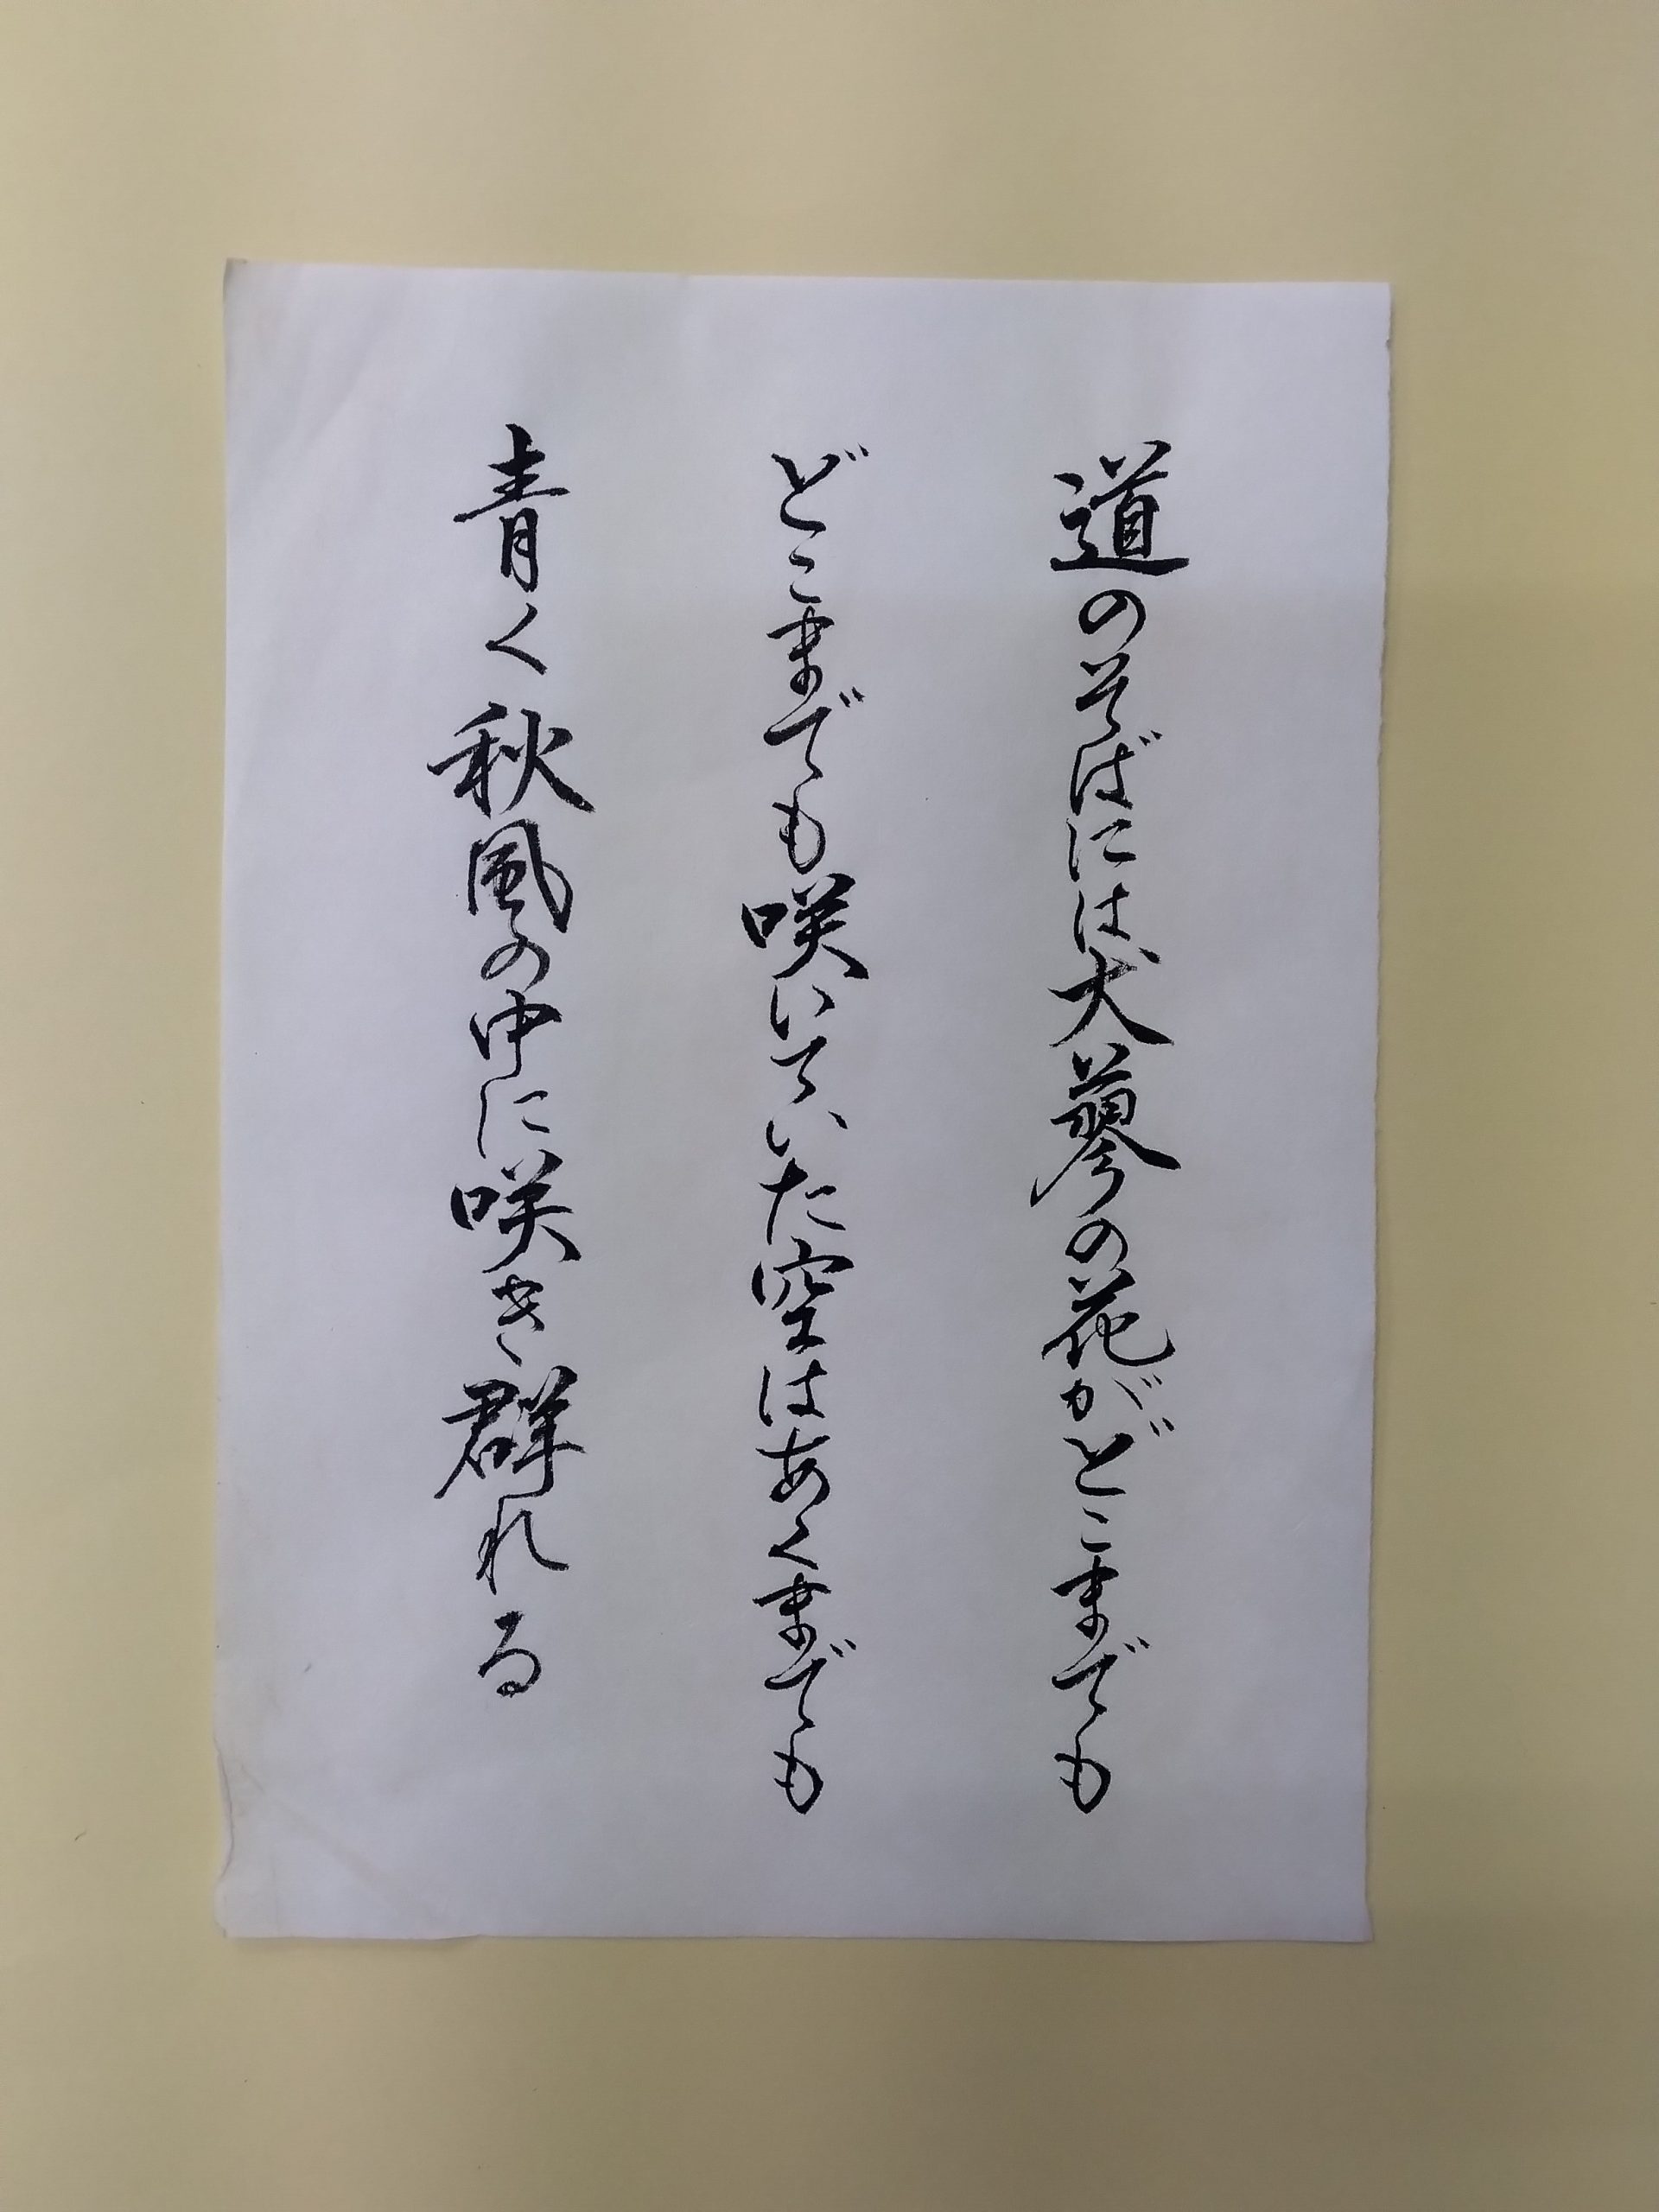 道のそばには犬蓼の花がどこまでも
どこまでも咲いていた空はあくまでも
青く秋風の中に咲き群れる